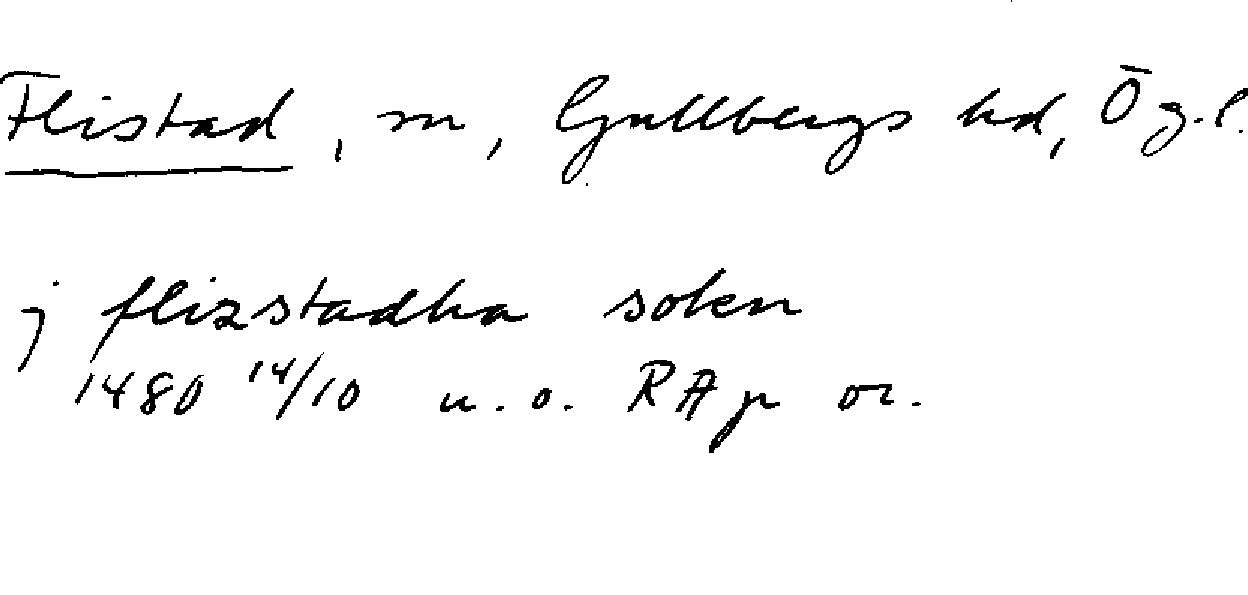 Flistad, sn, Gullbergs hd, Ög.l.
j flizstadha sokn
1480 14/10 u.o. RAp or.